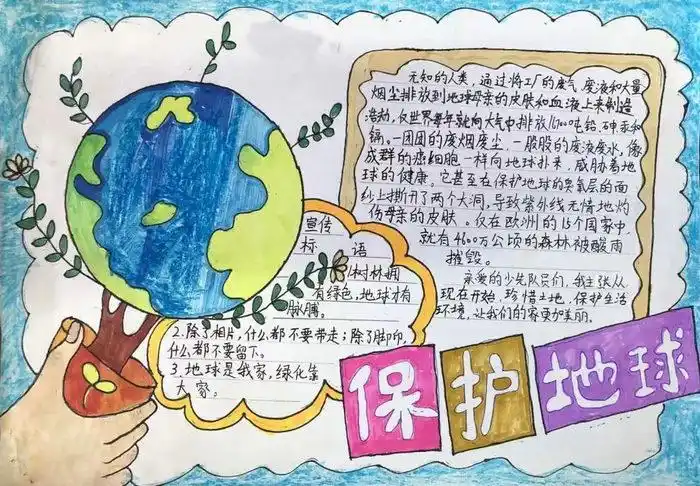 无知的人类，通过将工厂的废气，废液和大量
烟尘排放到地球母亲的皮肤和血液上来制造
浩劫，仅世界每年就向大气中排放1600吨铅，砷汞和
镉。一团团的废烟废尘，一股股的废液废水，像
成群的癌细胞一样向地球扑来，威胁着地
球的健康。它甚至在保护地球的臭氧层的面
纱上撕开了两个大洞，导致紫外线无情地灼
伤母亲的皮肤。仅在欧洲的15个国家中，
就有4600万公顷的森林被酸雨
摧毁。
亲爱的少先队员们，我主张从
现在开始，珍惜土地，保护生活
环境，让我们的容更加美丽。
宣传
标 语
1树林拥
有绿色，地球才有
脉膊。
2.除了相片，什么都不要带走；除了脚印，
什么都不要留下。
3.地球是我家，绿化靠
大家。
保护地球